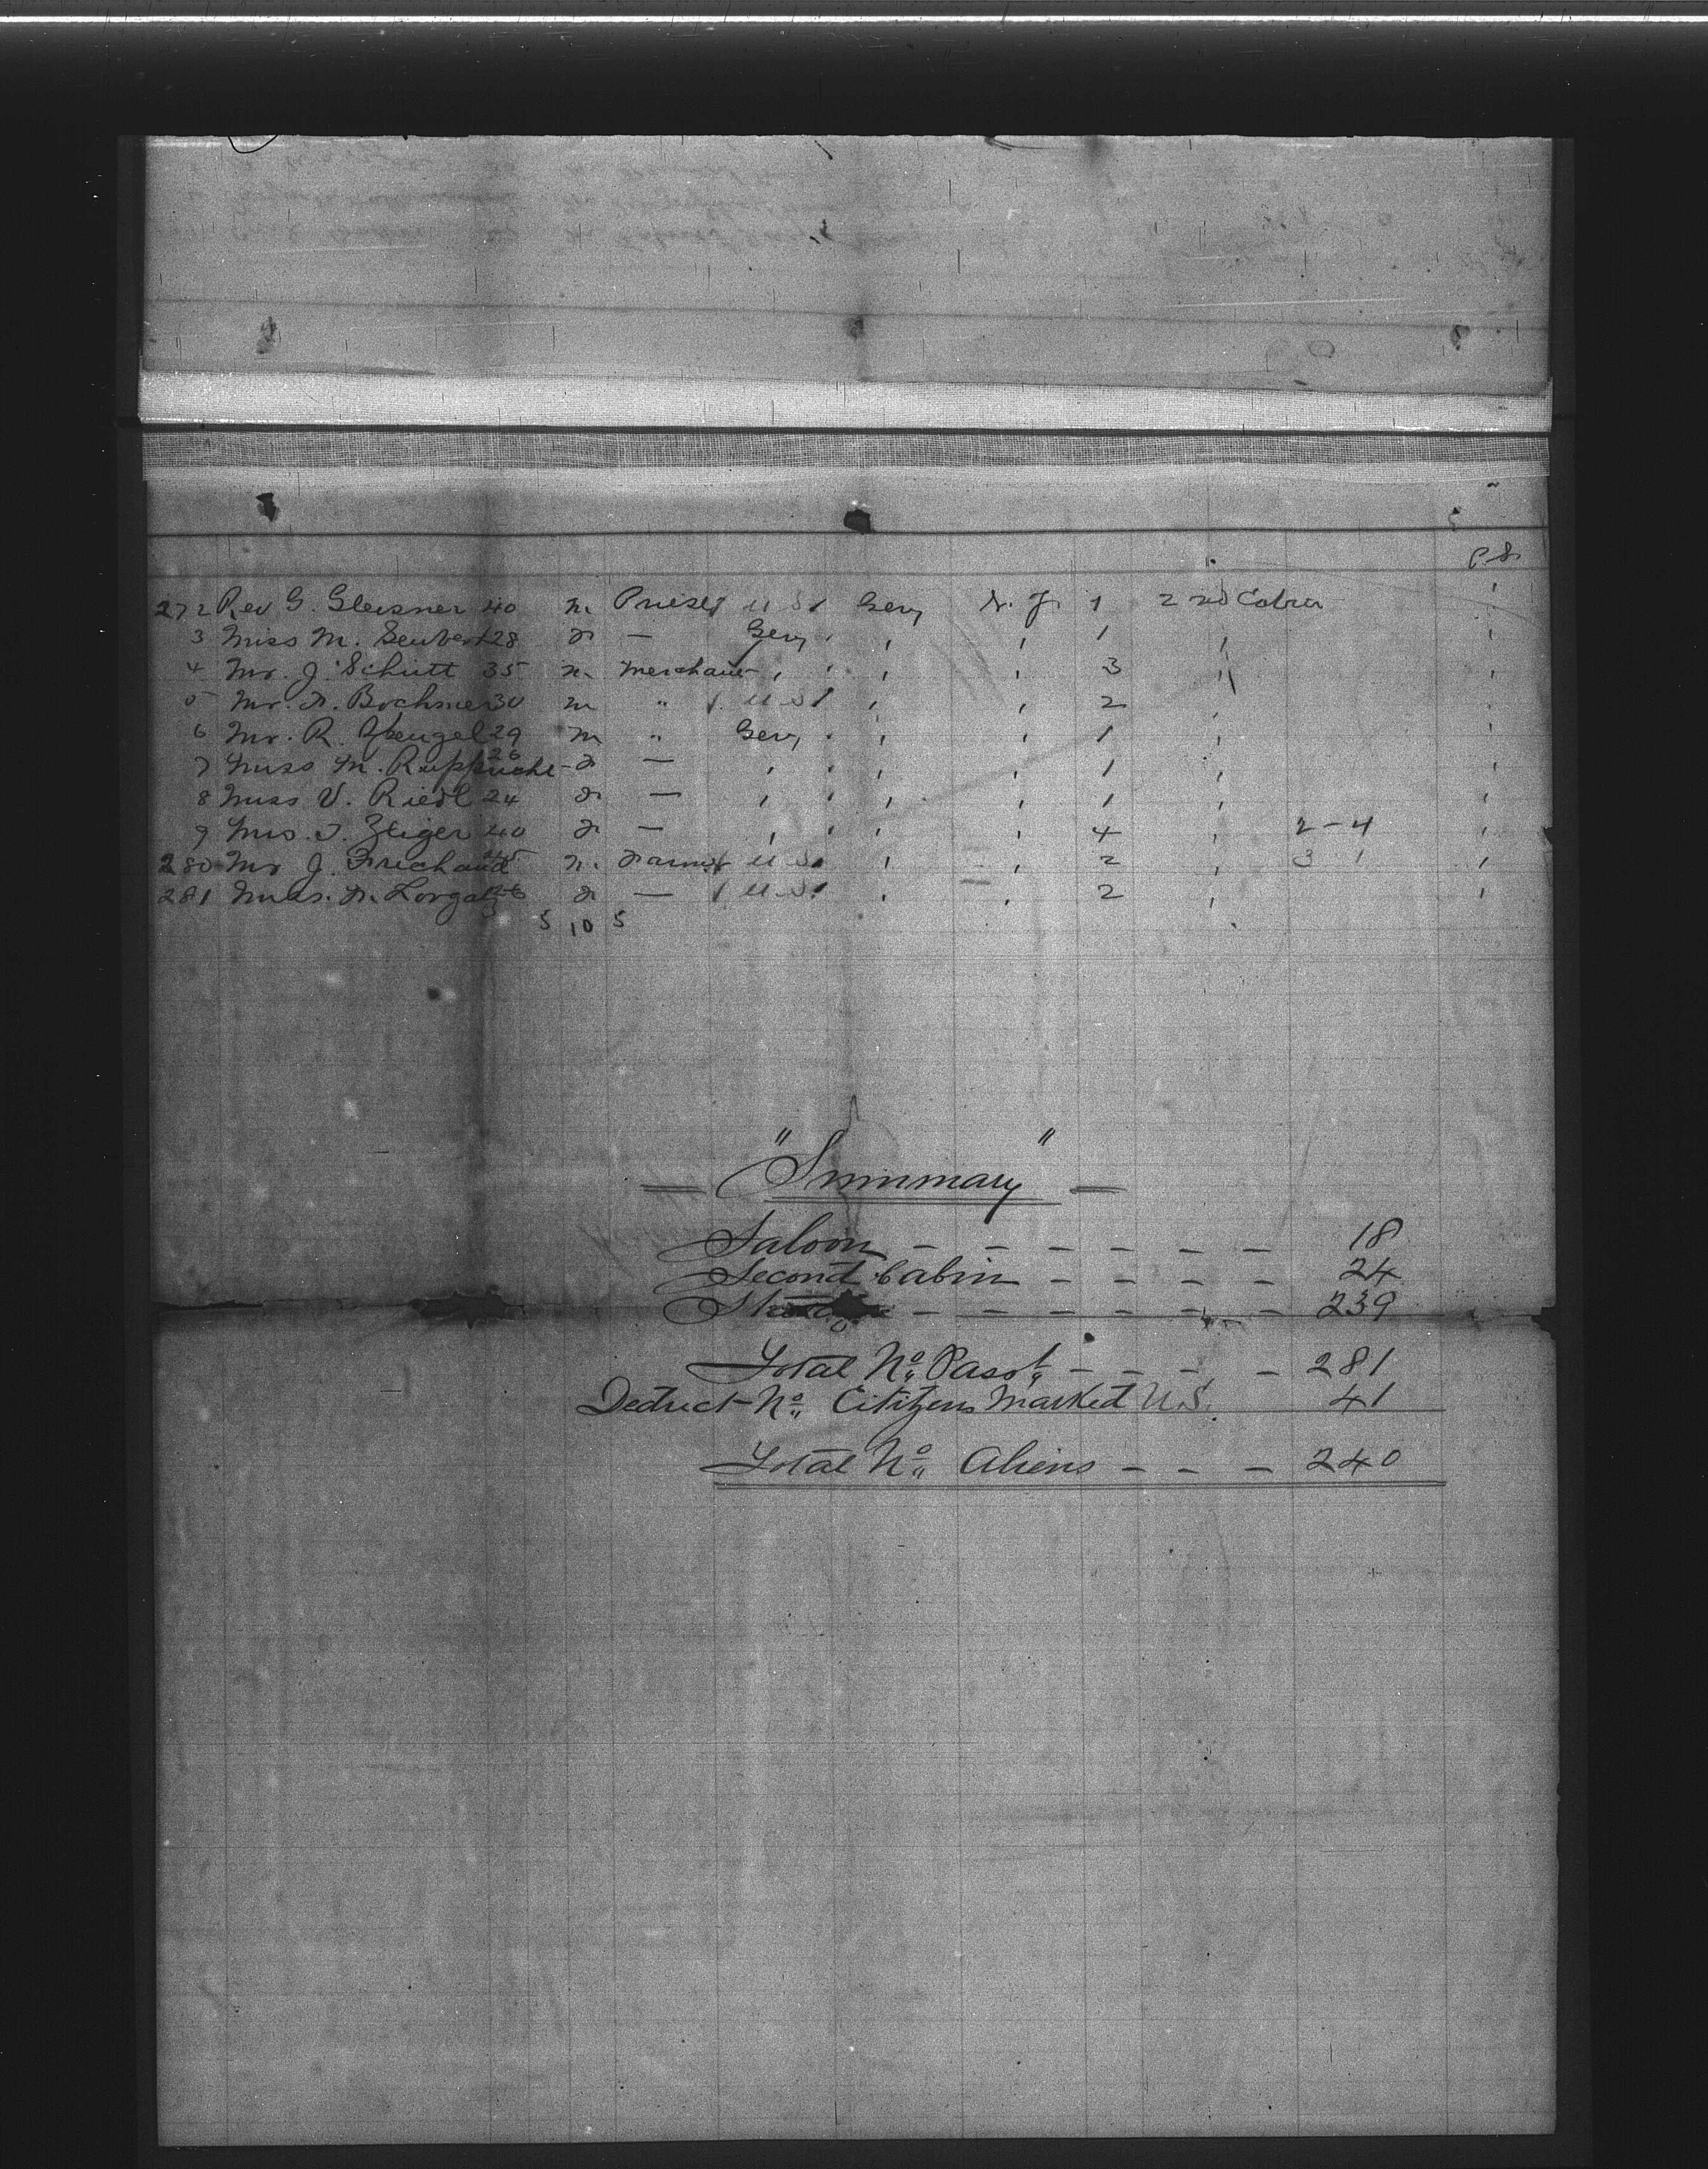 P S
272 Rev G. Gleisner 40 m Priest U S Gery N. Y. 1 2nd Cabin
3 Miss M. Seubert 28 f — Gery , , , 1 ,
4 Mr. J. Schutt 35 m Merchant , , , 3 ,
5 Mr. F. Bochmer 30 m " U S , , 2 ,
6 Mr. R. 29 m " Gery , , , 1 ,
7 Miss M. Rupprecht 26 f — , , , , 1 ,
8 Miss V. Riedl 24 f — , , , , 1 ,
9 Mrs. T. Zeiger 40 f — , , , , 4 , 2-4
280 Mr J. m. Farmer U S , , 2 , 3 1
281 f — U S , , 2 ,
5 10 5
— "Summary" —
Saloon - - - - - - - 18
Second Cabin - - - - 24
- - - - - - - 239
Total No. Passt. - - - - 281
Deduct No. Citizens Marked U.S. 41
Total No. Aliens - - - 240